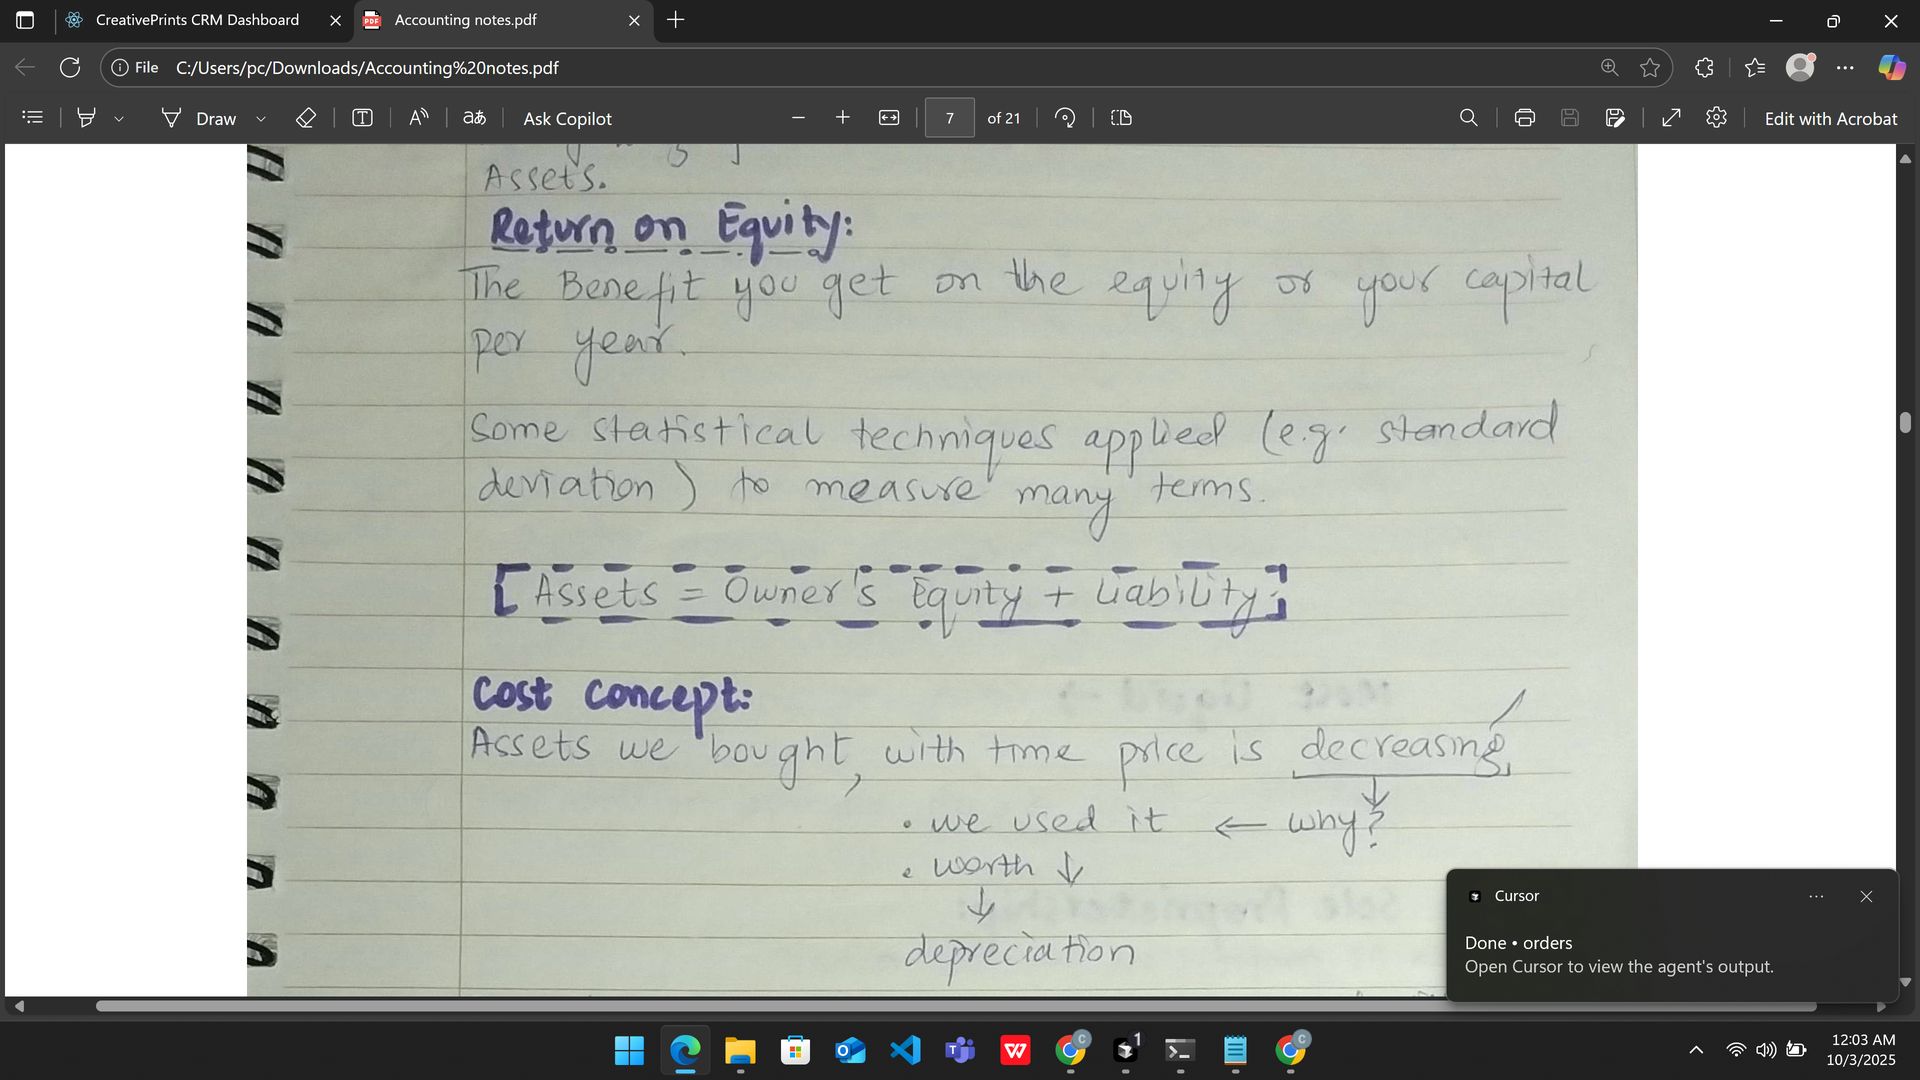 CreativePrints CRM Dashboard
Accounting notes.pdf
File
C:/Users/pc/Downloads/Accounting%20notes.pdf
Draw
Ask Copilot
7
of 21
Edit with Acrobat
Assets.
Return on Equity:
The Benefit you get on the equity or your capital
per year.
Some statistical techniques applied (e.g. standard
deviation) to measure many terms.
Assets = Owner's Equity + Liability
Cost Concept:
Assets we bought, with time price is decreasing
• we used it ← why?
• worth ↓
↓
depreciation
Cursor
Done • orders
Open Cursor to view the agent's output.
12:03 AM
10/3/2025